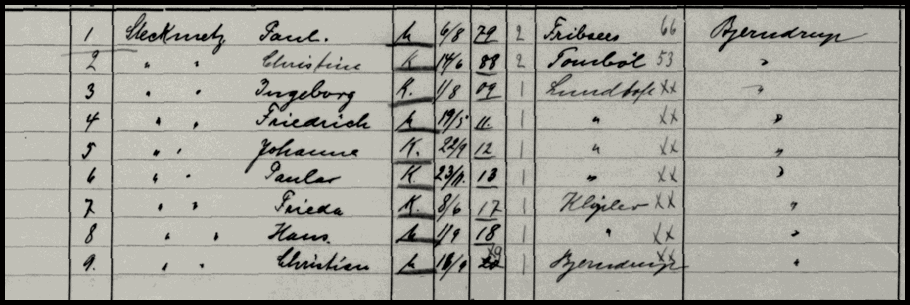 1 Steckmetz Paul. M 6/8 79 2 Tribsees 66 Bjerndrup
2 " " Christine K 14/6 88 2 Tombøl 53 "
3 " " Ingeborg K. 1/8 09 1 Lundtoft XX "
4 " " Friedrich M 19/5 11. 1 " XX "
5 " " Johanne K. 22/9 12 1 " XX "
6 " " Paula K 23/11. 13 1 " XX "
7 " " Frieda K. 8/6 17 1 Kliplev XX "
8 " " Hans. M 1/9 18 1 " XX "
9. " " Christian M 16/9 1 Bjerndrup XX "